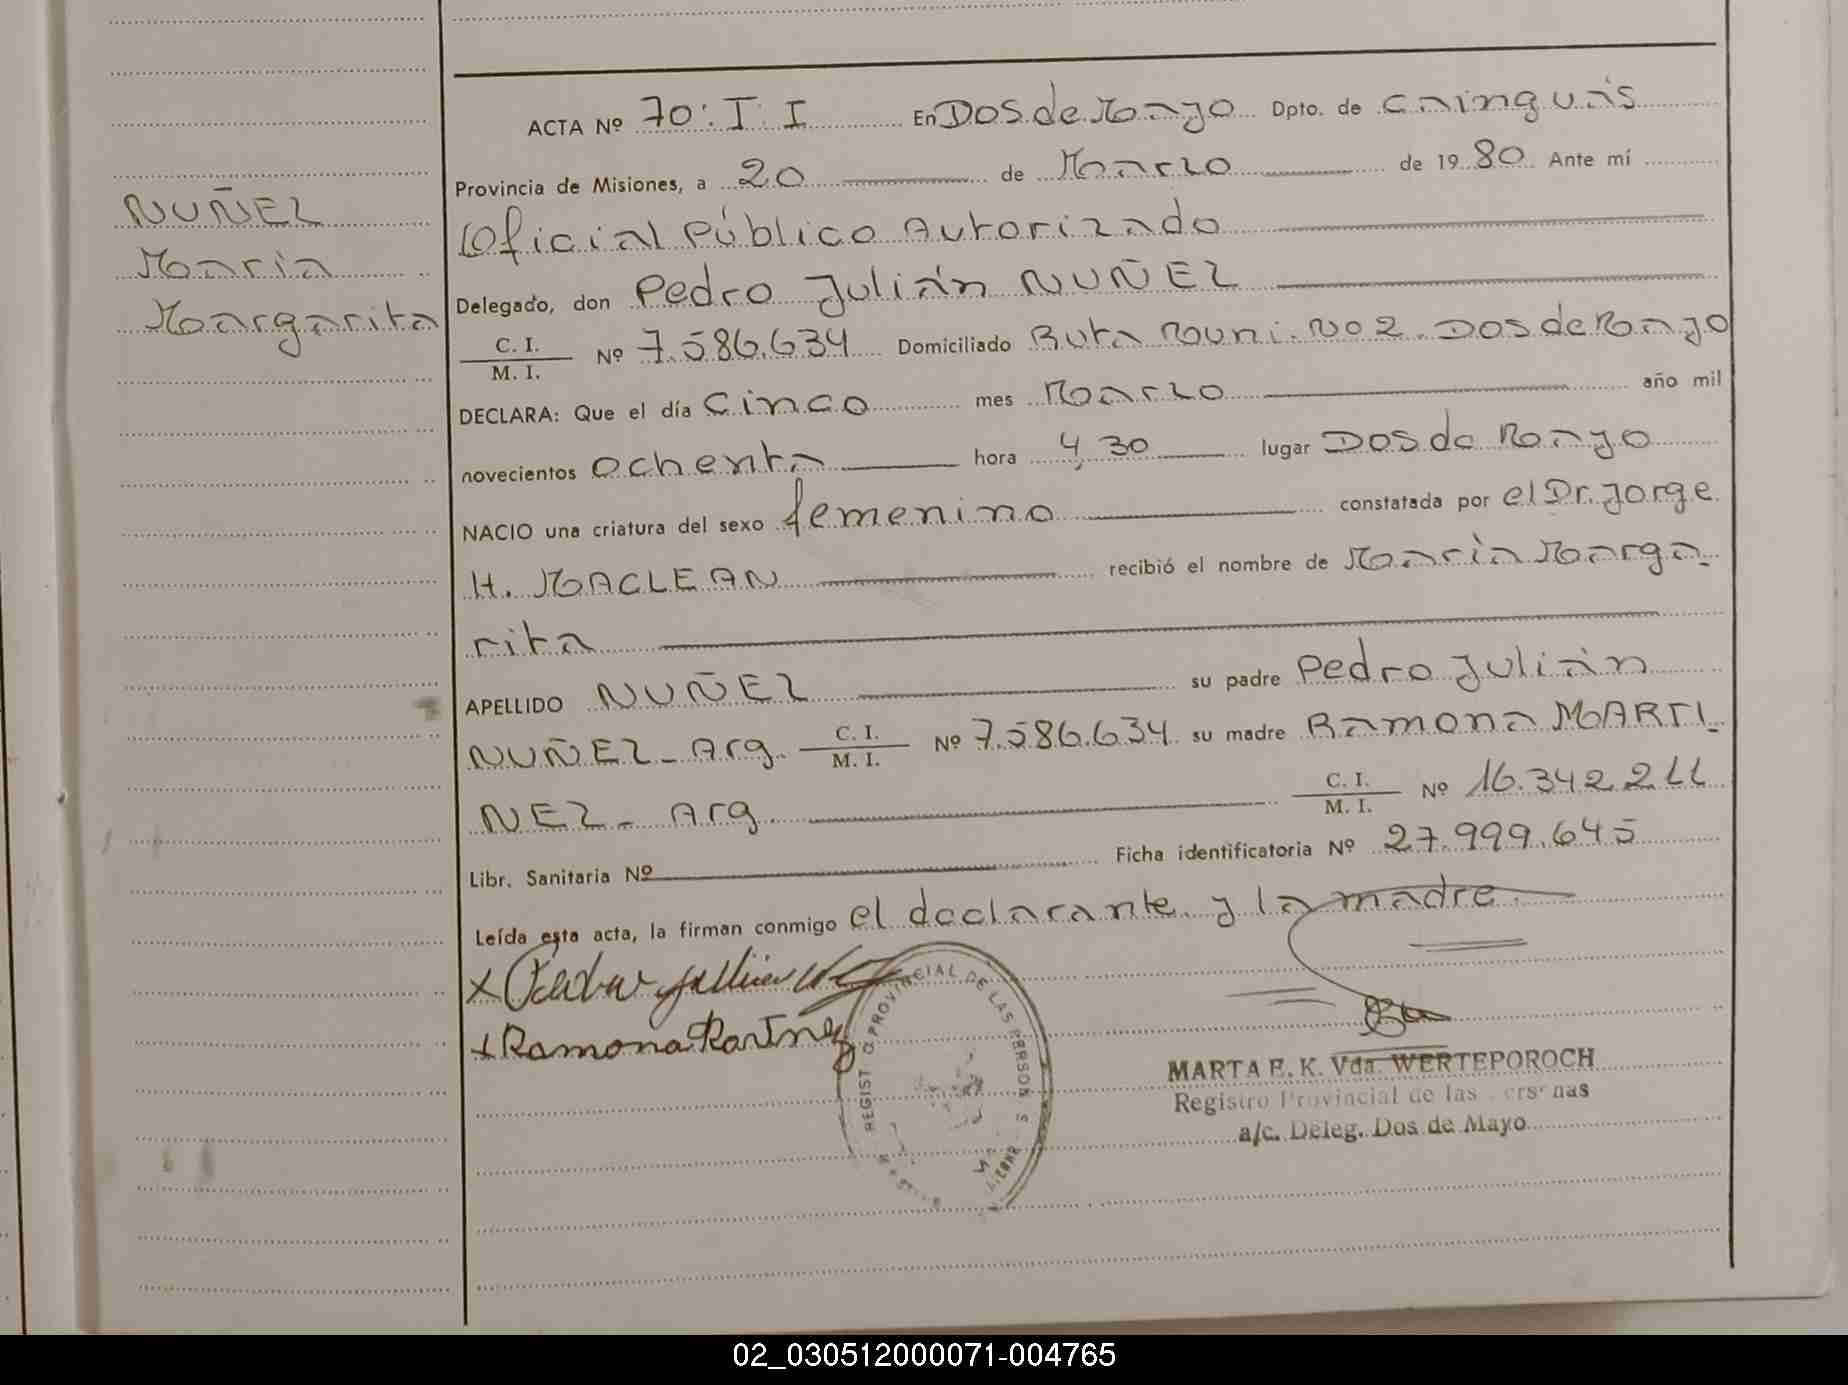 NUÑEZ
Maria
Margarita
ACTA Nº 70: T: I En Dos de Mayo Dpto. de Cainguás
Provincia de Misiones, a 20 de Marzo de 1980 Ante mí
Oficial Público Autorizado
Delegado, don Pedro Julián NUÑEZ
C. I. / M. I. Nº 7.586.634 Domiciliado Ruta Muni. No 2. Dos de Mayo
DECLARA: Que el día cinco mes Marzo año mil
novecientos ochenta hora 4,30 lugar Dos de Mayo
NACIO una criatura del sexo femenino constatada por el Dr. Jorge
H. MACLEAN recibió el nombre de María Marga-
rita
APELLIDO NUÑEZ su padre Pedro Julián
NUÑEZ - Arg. C. I. / M. I. Nº 7.586.634 su madre Ramona MARTI-
NEZ - Arg. C. I. / M. I. Nº 16.342.211
Libr. Sanitaria Nº Ficha identificatoria Nº 27.999.645
Leída esta acta, la firman conmigo el declarante y la madre
x
x Ramona Martinez
REGISTRO PROVINCIAL DE LAS PERSONAS
MARTA E. K. Vda. WERTEPOROCH
Registro Provincial de las Personas
a/c. Deleg. Dos de Mayo
02_030512000071-004765